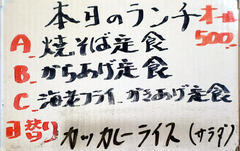 本日のランチ オール500
A. 焼そば定食
B. からあげ定食
C. 海老フライ. かきあげ定食
日替り カツカレーライス (サラダ)